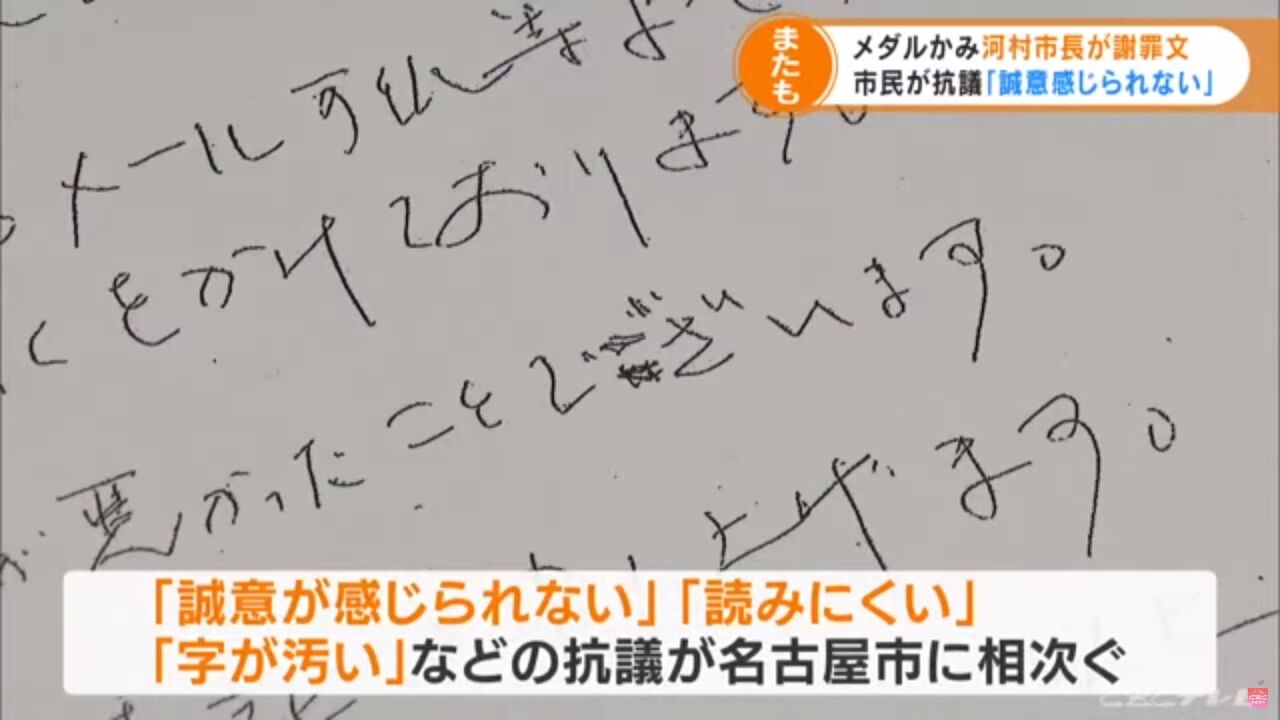 またも
メダルかみ河村市長が謝罪文
市民が抗議「誠意感じられない」
メール
くをかけております。
が悪かったことでございます。
上げます。
「誠意が感じられない」「読みにくい」
「字が汚い」などの抗議が名古屋市に相次ぐ
CBCテレビ